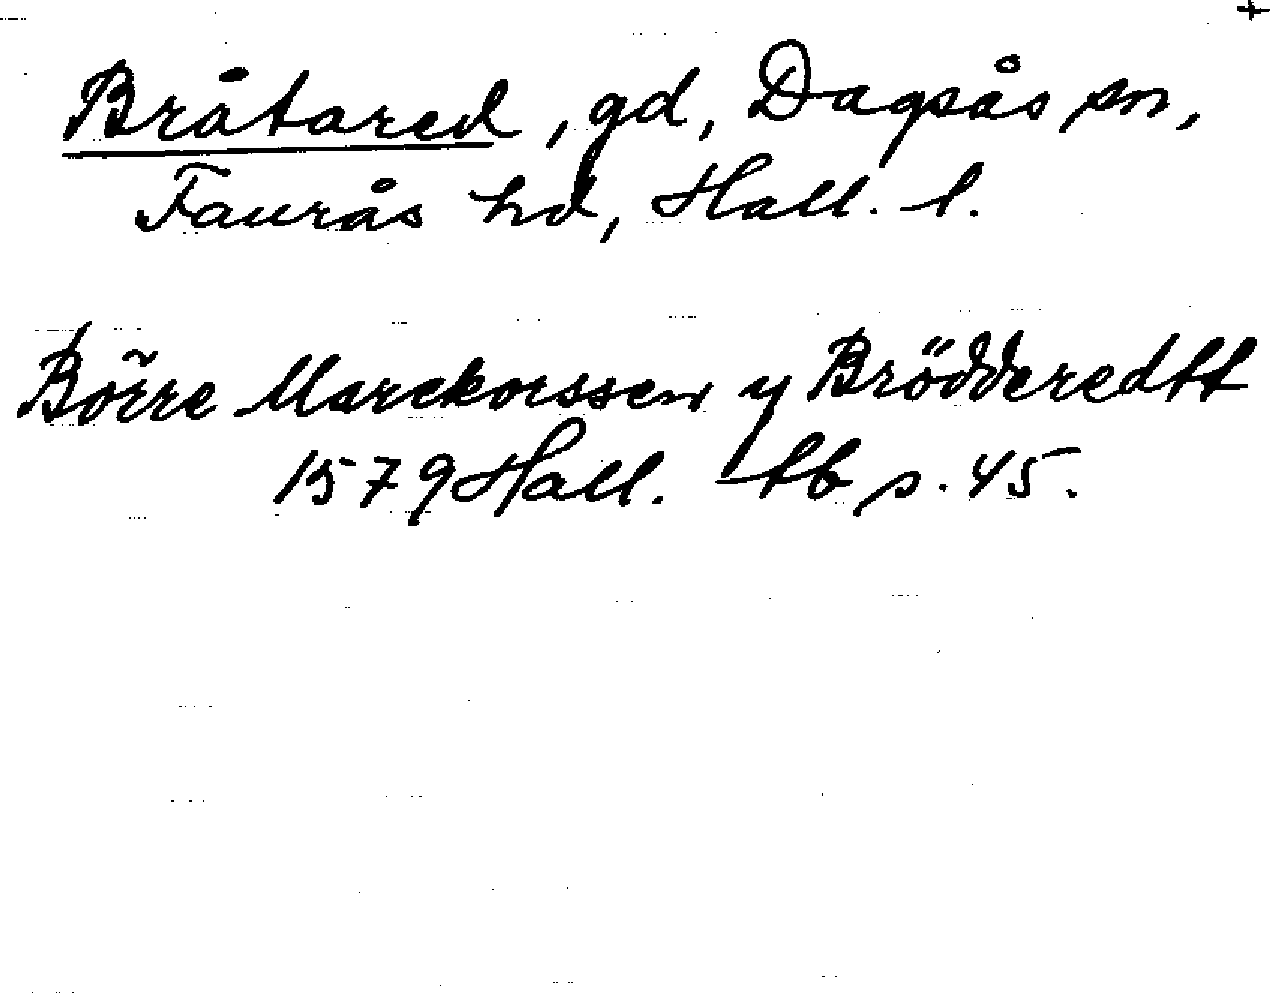 +
Bråtared, gd, Dagsås sn,
Faurås hd, Hall. l.
Börre Marckorssen y Brödderedtt
1579 Hall. tb s. 45.